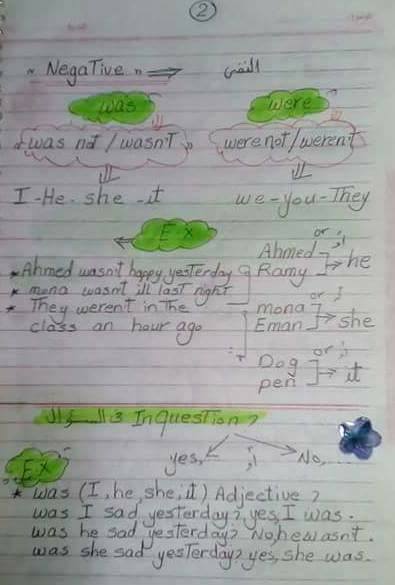 2
" Negative " ⇒ النفى
was were
was not / wasn't were not / weren't
I - He - she - it we - you - They
Ex
Ahmed or أو
Ramy → he
* Ahmed wasn't happy yesterday
* mona wasn't ill last night
* They weren't in the
class an hour ago
mona or أو
Eman → she
Dog or أو
pen → it
السؤال 3 In Question ?
yes, أو No,
Ex
* was (I, he, she, it) Adjective ?
was I sad yesterday? yes, I was.
was he sad yesterday? No, he wasn't.
was she sad yesterday? yes, she was.